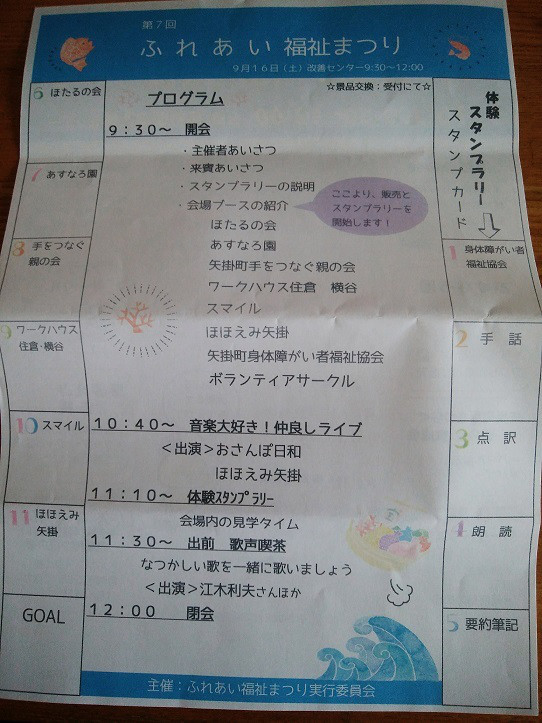 第7回
ふれあい福祉まつり
9月16日（土）改善センター9:30～12:00
☆景品交換：受付にて☆
体験
スタンプラリー
スタンプカード
1 身体障がい者
福祉協会
2 手話
3 点訳
4 朗読
5 要約筆記
6 ほたるの会
7 あすなろ園
8 手をつなぐ
親の会
9 ワークハウス
住倉・横谷
10 スマイル
11 ほほえみ
矢掛
GOAL
プログラム
9：30～ 開会
・主催者あいさつ
・来賓あいさつ
・スタンプラリーの説明
・会場ブースの紹介
ここより、販売と
スタンプラリーを
開始します！
ほたるの会
あすなろ園
矢掛町手をつなぐ親の会
ワークハウス住倉 横谷
スマイル
ほほえみ矢掛
矢掛町身体障がい者福祉協会
ボランティアサークル
10：40～ 音楽大好き！仲良しライブ
＜出演＞おさんぽ日和
ほほえみ矢掛
11：10～ 体験ｽﾀﾝﾌﾟﾗﾘｰ
会場内の見学タイム
11：30～ 出前 歌声喫茶
なつかしい歌を一緒に歌いましょう
＜出演＞江木利夫さんほか
12：00 閉会
主催：ふれあい福祉まつり実行委員会